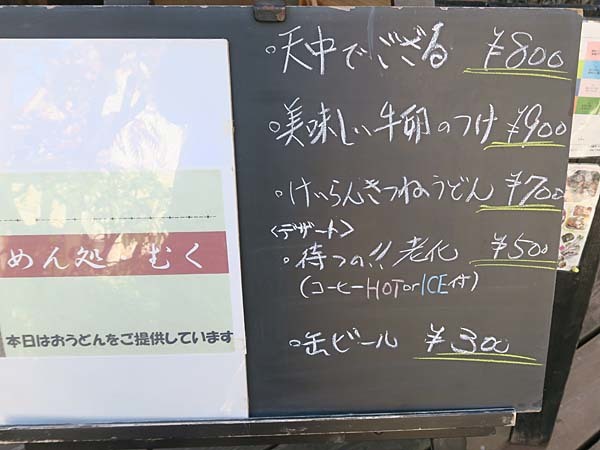 めん処 むく
本日はおうどんをご提供しています
・天中でござる ¥800
・美味しい牛卵のつけ ¥900
・けいらんきつねうどん ¥700
<デザート>
・待つの!! 老化 ¥500
(コーヒーHOT or ICE付)
・缶ビール ¥300